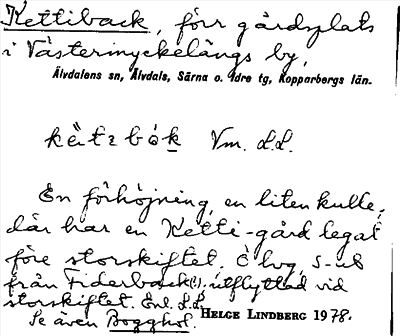 Kettiback, förr gårdsplats
i Västermyckelängs by,
Älvdalens sn, Älvdals, Särna o. Idre tg, Kopparbergs län.
Vm. L.L.
En förhöjning, en liten kulle,
där har en Ketti-gård legat
före storskiftet.
från Fiderback(!), utflyttad vid
storskiftet. Enl. L.L.
Se även Bogghol. HELGE LINDBERG 1978.